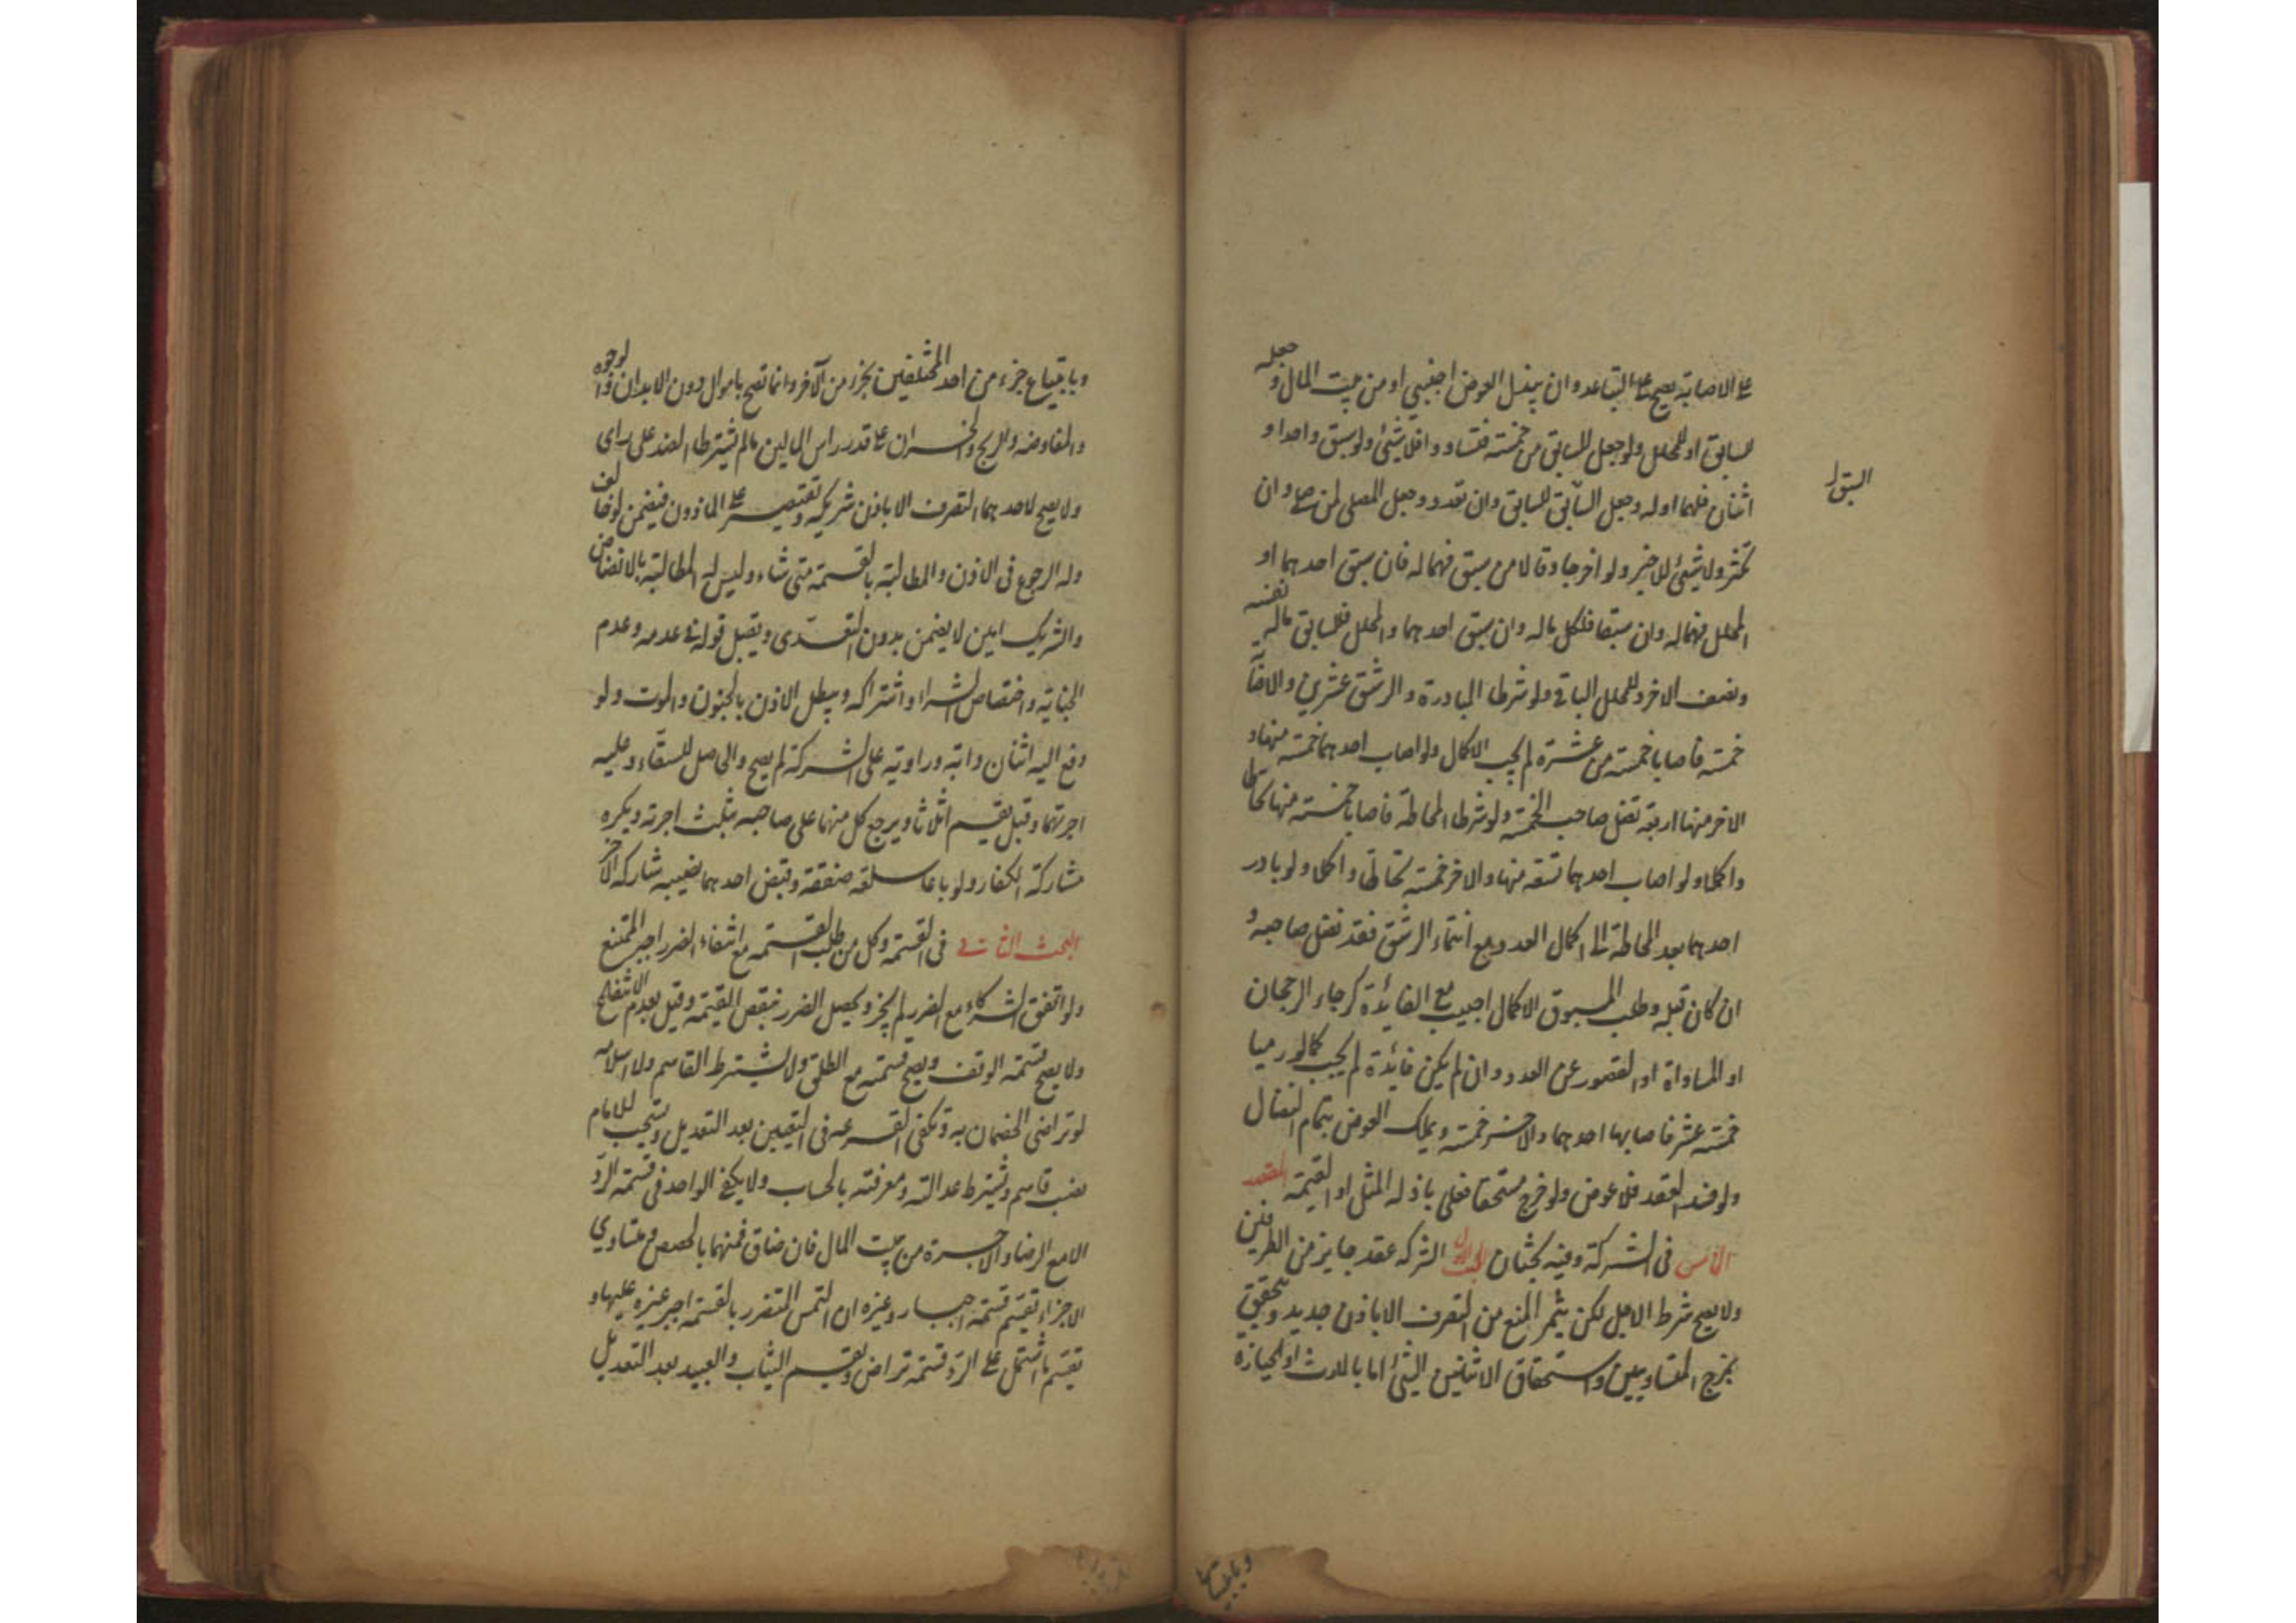 على الاصابة يصح على التباعد وان يبذل العوض اجنبي او من بيت المال وجعله
للسابق او للمحلل ولو جعل للسابق من خمسة فتساووا فلا شيئ ولو سبق واحد او
السبق
اثنان فلهما او له وجعل السابق للسابق وان تعدد وجعل المصلى لمن صلى وان
تكثر ولا شيئ للاخير ولو اخرجا وقالا من سبق فهما له فان سبق احدهما او
المحلل فهما له وان سبقا فلكل ماله وان سبق احدهما والمحلل فللسابق مال نفسه
ونصف الاخر وللمحلل الباقي ولو شرطا المبادرة والرشق عشرين والاصابة
خمسة فاصابا خمسة من عشرة لم يجب الاكمال ولو اصاب احدهما خمسة منها و
الاخر منها اربعة نضل صاحب الخمسة ولو شرطا المحاطة فاصابا خمسة منها تحاطا
واكملا ولو اصاب احدهما تسعة منها والاخر خمسة تحاطا واكملا ولو بادر
احدهما بعد المحاطة الى اكمال العدد مع انتهاء الرشق فقد نضل صاحبه و
ان كان قبله وطلب المسبوق الاكمال اجيب مع الفائدة كرجاء الرجحان
او المساواة او القصور عن العدد وان لم يكن فائدة لم يجب كما لو رميا
خمسة عشر فاصابها احدهما والاخر خمسة ويملك العوض بتمام النضال
ولو فسد العقد فلا عوض ولو خرج مستحقا فعلى باذله المثل او القيمة المقصد
الخامس فى الشركة وفيه بحثان البحث الاول الشركة عقد جايز من الطرفين
ولا يصح شرط الاجل لكن يثمر المنع من التصرف الا باذن جديد ويتحقق
بمزج المتساويين واستحقاق الاثنين الشيئ اما بالارث او الحيازة
وبابتياع
وبابتياع جزء من احد المختلفين بجزء من الاخر وانما تصح باموال دون الابدان والوجوه
والمفاوضة والربح والخسران على قدر راس المالين ما لم يشترطا الضد على راى
ولا يصح لاحدهما التصرف الا باذن شريكه ويقتصر على الماذون فيضمن لو خالف
وله الرجوع فى الاذن والمطالبة بالقسمة متى شاء وليس له المطالبة بالانضاض
والشريك امين لا يضمن بدون التعدى ويقبل قوله فى عدمه وعدم
الخيانة واختصاص الشراء واشتراكه ويبطل الاذن بالجنون والموت ولو
دفع اليه اثنان دابة وراوية على الشركة لم يصح والحاصل للسقاء وعليه
اجرتهما وقيل يقسم اثلاثا ويرجع كل منهما على صاحبه بثلث اجرته ويكره
مشاركة الكفار ولو باعا سلعة صفقة وقبض احدهما نصيبه شاركه الاخر
البحث الثانى فى القسمة وكل من طلب القسمة مع انتفاء الضرر اجبر الممتنع
ولو اتفق الشركاء مع الضرر لم يجز ويحصل الضرر بنقص القيمة وقيل بعدم الانتفاع
ولا يصح قسمة الوقف ويصح قسمته مع الطلق ولا يشترط القاسم ولا اسلامه
لو تراضى الخصمان به وتكفى القرعة فى التعيين بعد التعديل ويستحب للامام
نصب قاسم ويشترط عدالته ومعرفته بالحساب ولا يكفى الواحد فى قسمة الرد
الا مع الرضا والاجرة من بيت المال فان ضاق فمنهما بالحصص ومتساوي
الاجزاء يقسم قسمة اجبار وغيره ان التمس المتضرر بالقسمة اجبر غيره عليها و
يقسم ما اشتمل على الرد قسمة تراض ويقسم الثياب والعبيد بعد التعديل